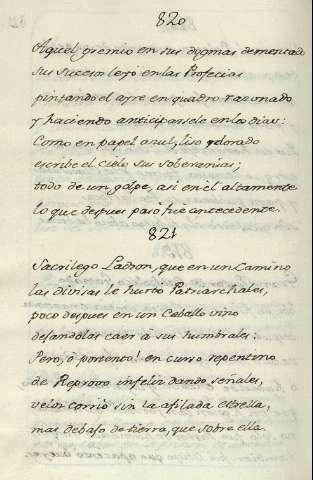 820
Aquel gremio en sus dogmas dementado
sus sucesos leyó en las Profecias
pintando el ayre en quadro razonado
y haciendo anticiparsele en los dias:
Como en papel azul, liso y dorado
escribe el Cielo sus soberanias;
todo de un golpe, asi en èl altamente
lo que despues pasó fue antecedente.
821
Sacrilego Ladron, que en un Camino
las divisas le hurtó Patriarchales,
poco despues en un Caballo vino
dejandolas caer à sus humbrales:
Pero, ò portento! en curso repentino
de Reprovo infeliz dando señales,
veloz corrió sin la afilada estrella,
mas debajo de tierra, que sobre ella.